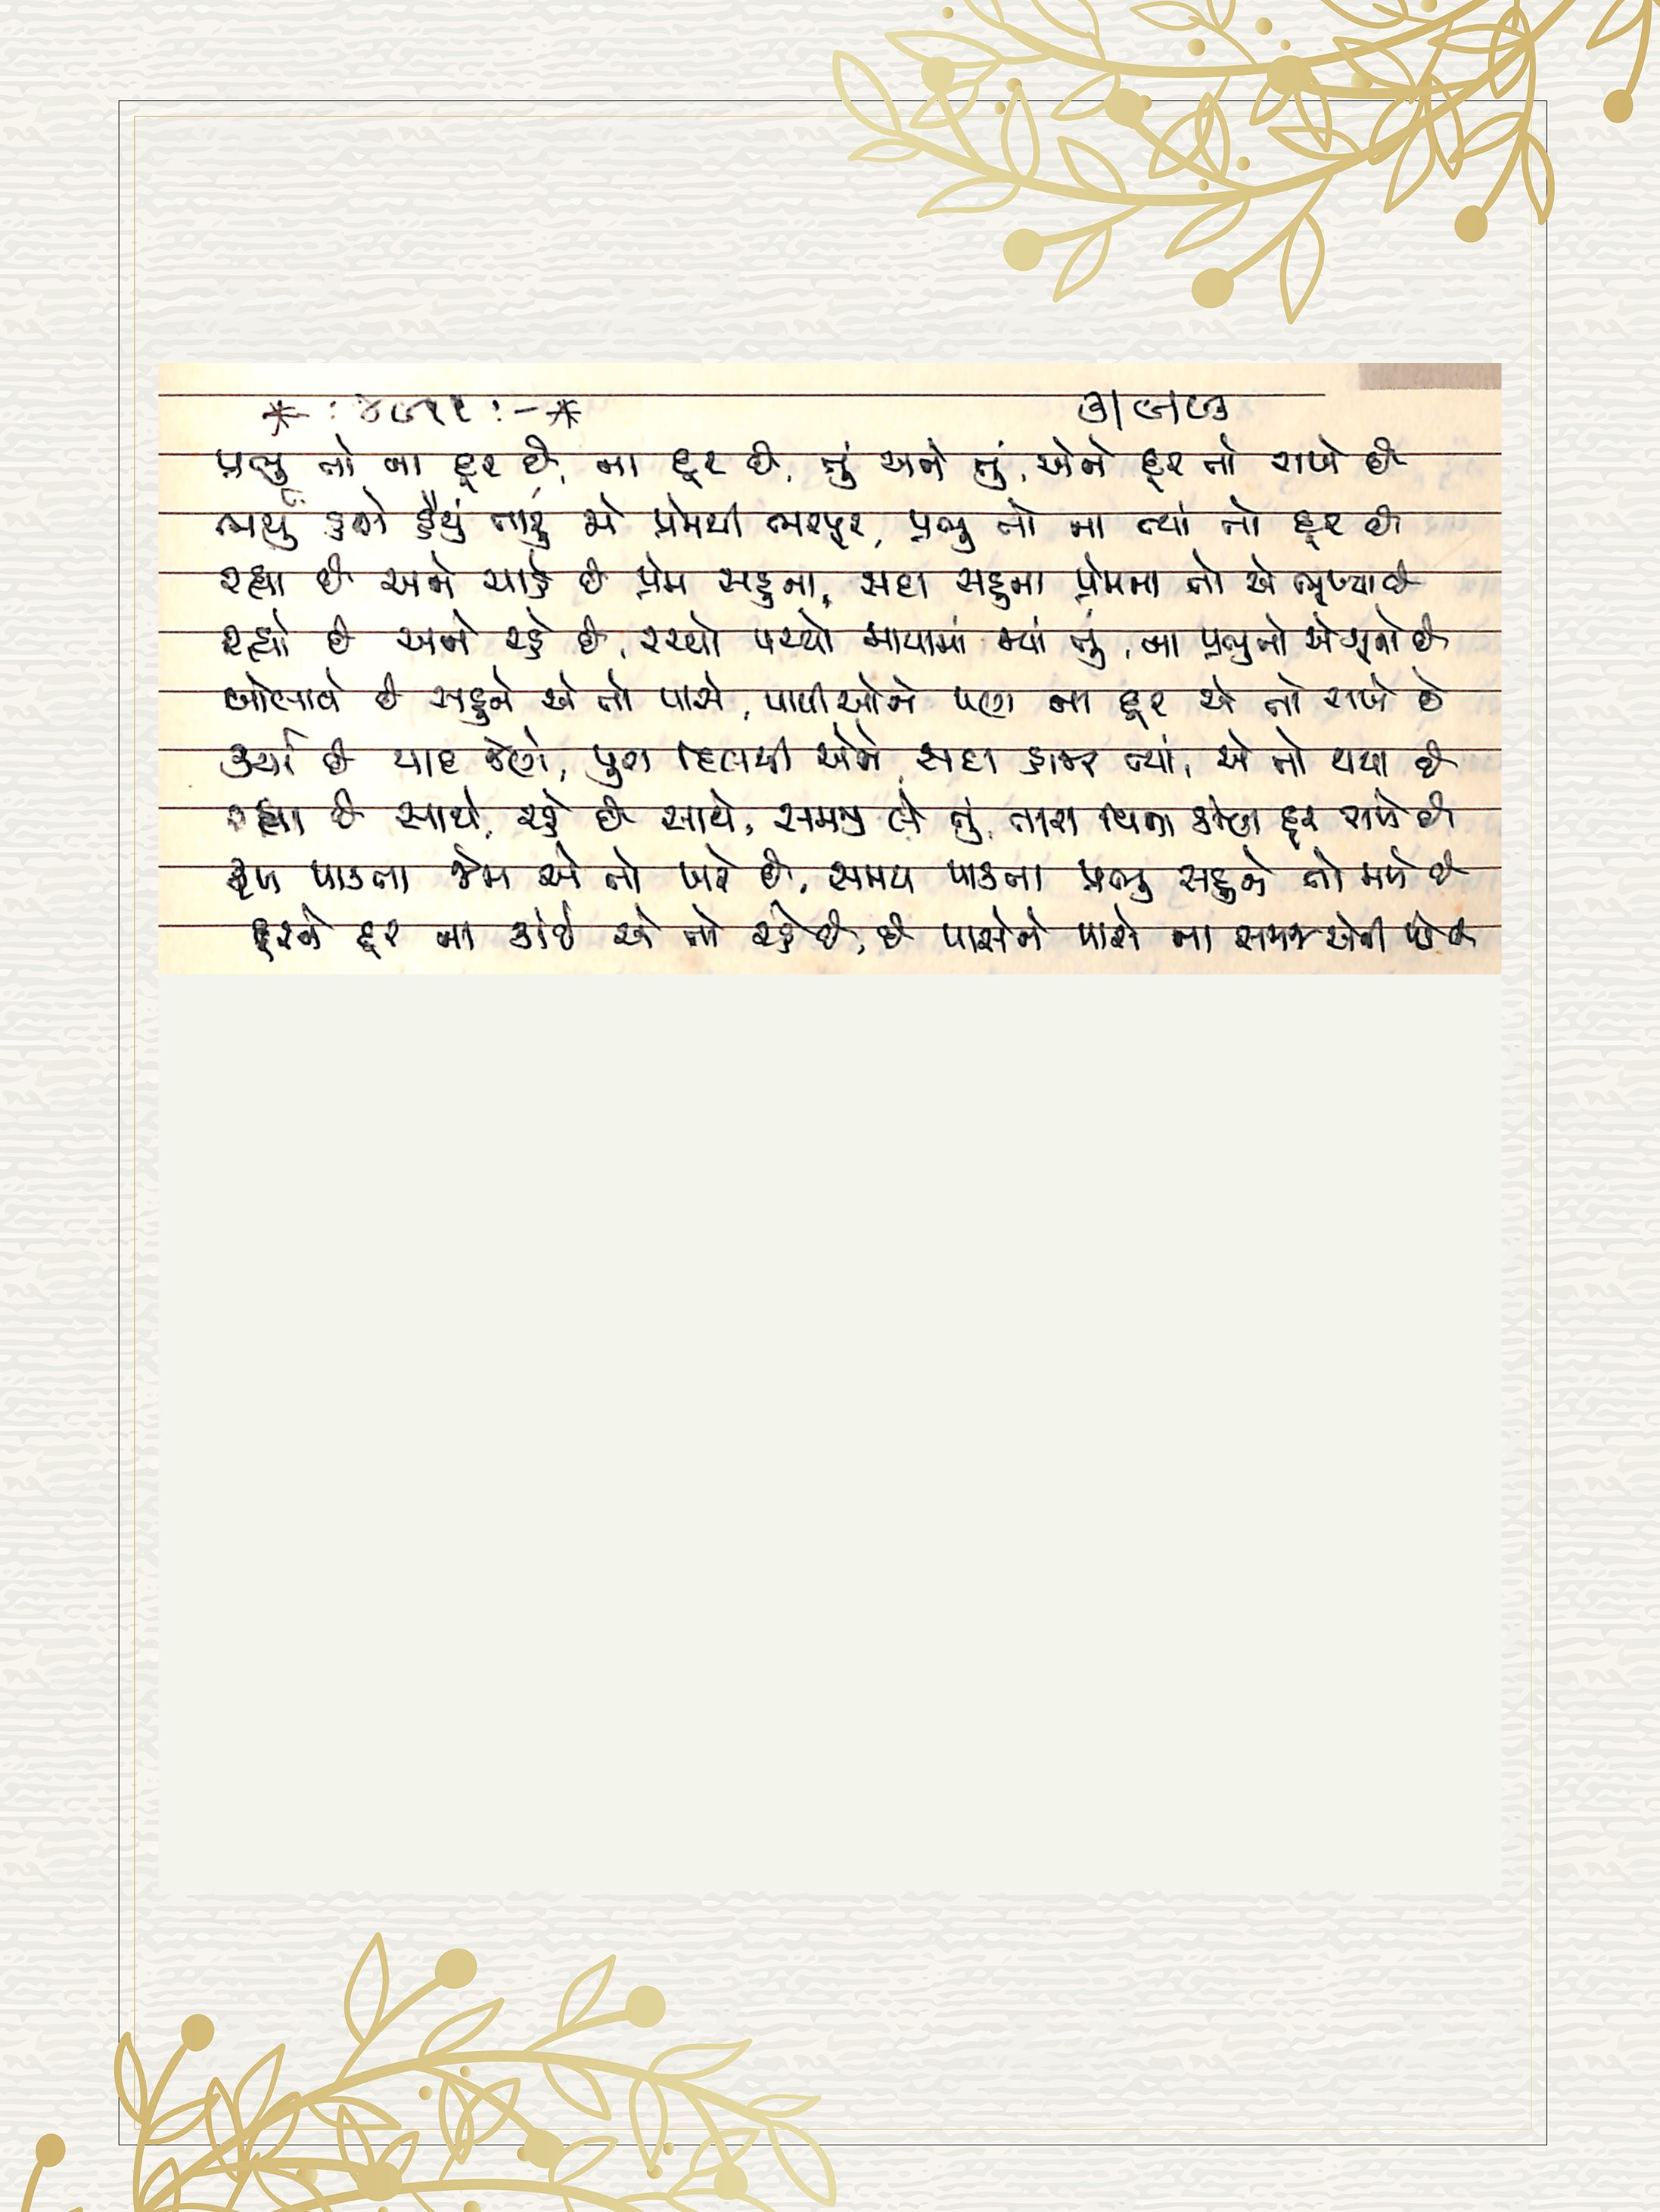 પ્રભુ તો ના દૂર છે, ના દૂર છે, તું અને તું, એને દૂર તો રાખે છે
ભર્યું હશે હૈયું તારું એ પ્રેમથી ભરપૂર, પ્રભુ તો ના ત્યાં તો દૂર છે
રહ્યા છે અને ચાહે છે પ્રેમ સહુના, સદા સહુના પ્રેમના તો એ ભૂખ્યા છે
રહ્યો છે અને રહે છે, રચ્યો પચ્યો માયામાં જ્યાં તું, ના પ્રભુનો એ ગુનો છે
બોલાવે છે સહુને એ તો પાસે, પાપીઓને પણ ના દૂર એ તો રાખે છે
કર્યા છે યાદ જેણે, પુરા દિલથી એને, સદા હાજર ત્યાં, એ તો થયા છે
રહ્યા છે સાથે, રહે છે સાથે, સમજી લે તું, તારા વિના કોણ દૂર રાખે છે
ફળ પાકતા જેમ એ તો ખરે છે, સમય પાકતા પ્રભુ સહુને તો મળે છે
દૂરને દૂર ના કાંઈ એ તો રહે છે, છે પાસેને પાસે ના સમજ એની પડે છે